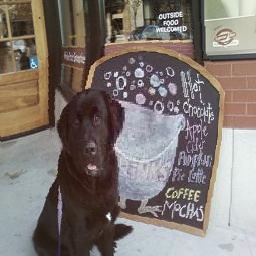 OUTSIDE
FOOD
WELCOMED
Hot
Chocolate
Apple
Cider
Pumpkin
Pie Latte
COFFEE
MOCHAS